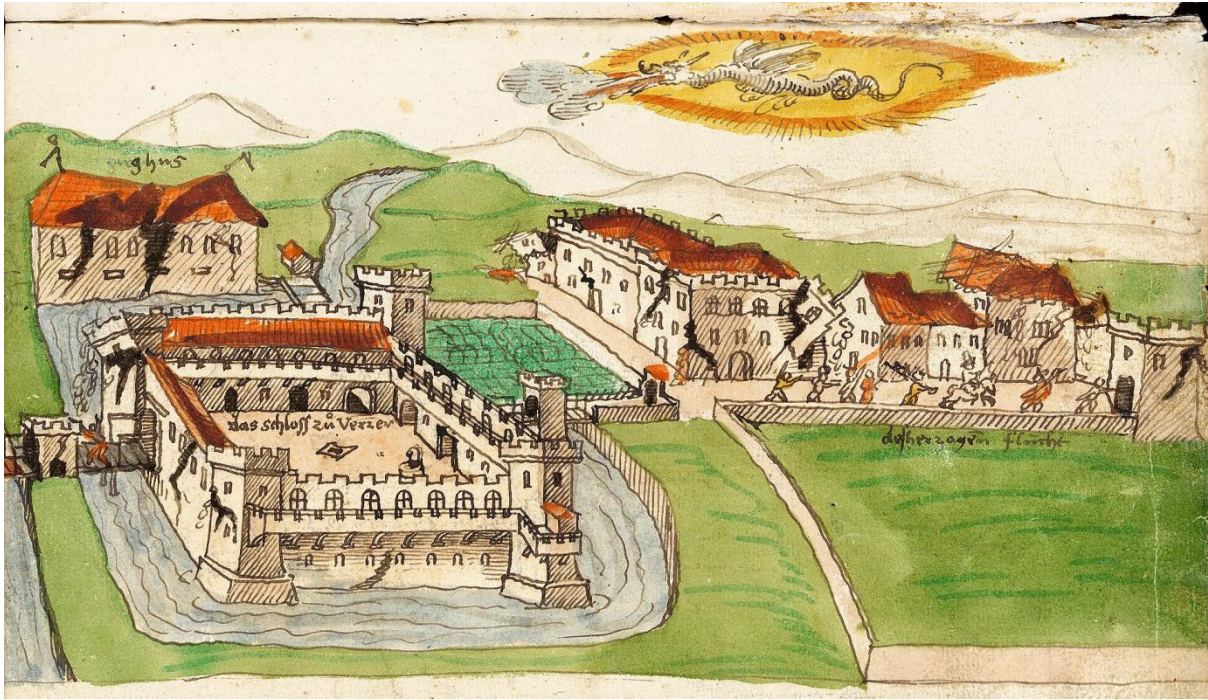 zughus
das schloss zů Verrer
desherzogen flucht